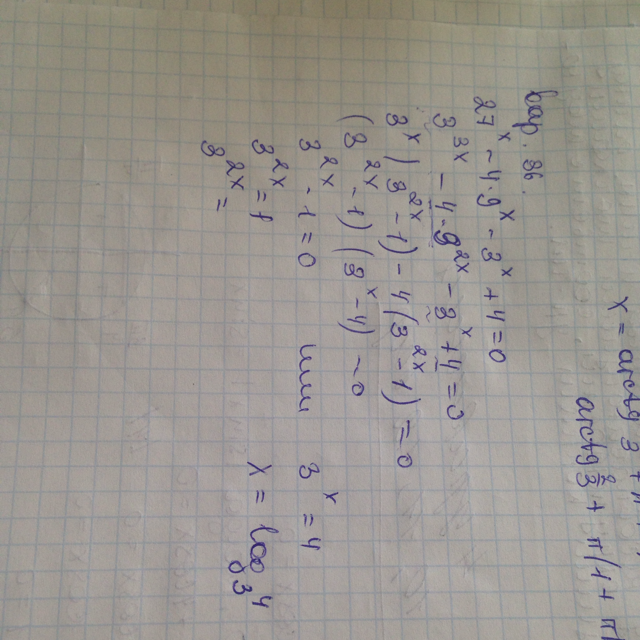 x = arctg
arctg 2/3 + π/4 + π
вар. 36.
27^x - 4·9^x - 3^x + 4 = 0
3^3x - 4·9^2x - 3^x + 4 = 0
3^x ) 3^2x - 1) - 4(3^2x - 1) = 0
(3^2x - 1) (3^x - 4) = 0
3^2x - 1 = 0 или 3^x = 4
3^2x = 1 x = log_3 4
3^2x =